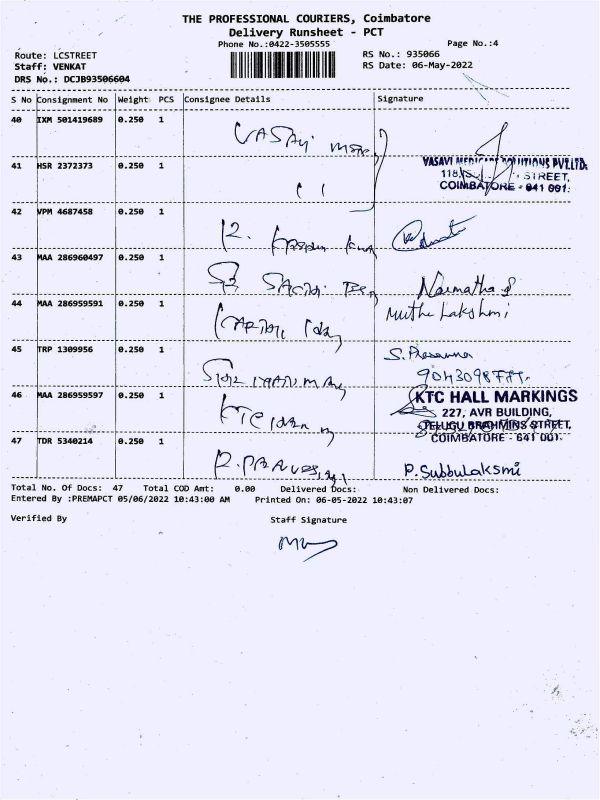 THE PROFESSIONAL COURIERS, Coimbatore
Delivery Runsheet - PCT
Phone No.:0422-3505555
Page No.:4
Route: LCSTREET
RS No.: 935066
Staff: VENKAT
RS Date: 06-May-2022
DRS No.: DCJB93506604
S No Consignment No Weight PCS Consignee Details Signature
40 IXM 501419689 0.250 1 VASAVI
41 HSR 2372373 0.250 1 VASAVI MEDICARE SOLUTIONS PVT.LTD.
118, STREET,
COIMBATORE - 641 001.
42 VPM 4687458 0.250 1 R.
43 MAA 286960497 0.250 1 Sri Narmatha
44 MAA 286959591 0.250 1 Muthu Lakshmi
45 TRP 1309956 0.250 1 S. Prasanna
46 MAA 286959597 0.250 1 KTC KTC HALL MARKINGS
227, AVR BUILDING,
TELUGU BRAHMINS STREET,
COIMBATORE - 641 001.
47 TDR 5340214 0.250 1 R. P.Subbulaksmi
Total No. Of Docs: 47 Total COD Amt: 0.00 Delivered Docs: Non Delivered Docs:
Entered By :PREMAPCT 05/06/2022 10:43:00 AM Printed On: 06-05-2022 10:43:07
Verified By Staff Signature